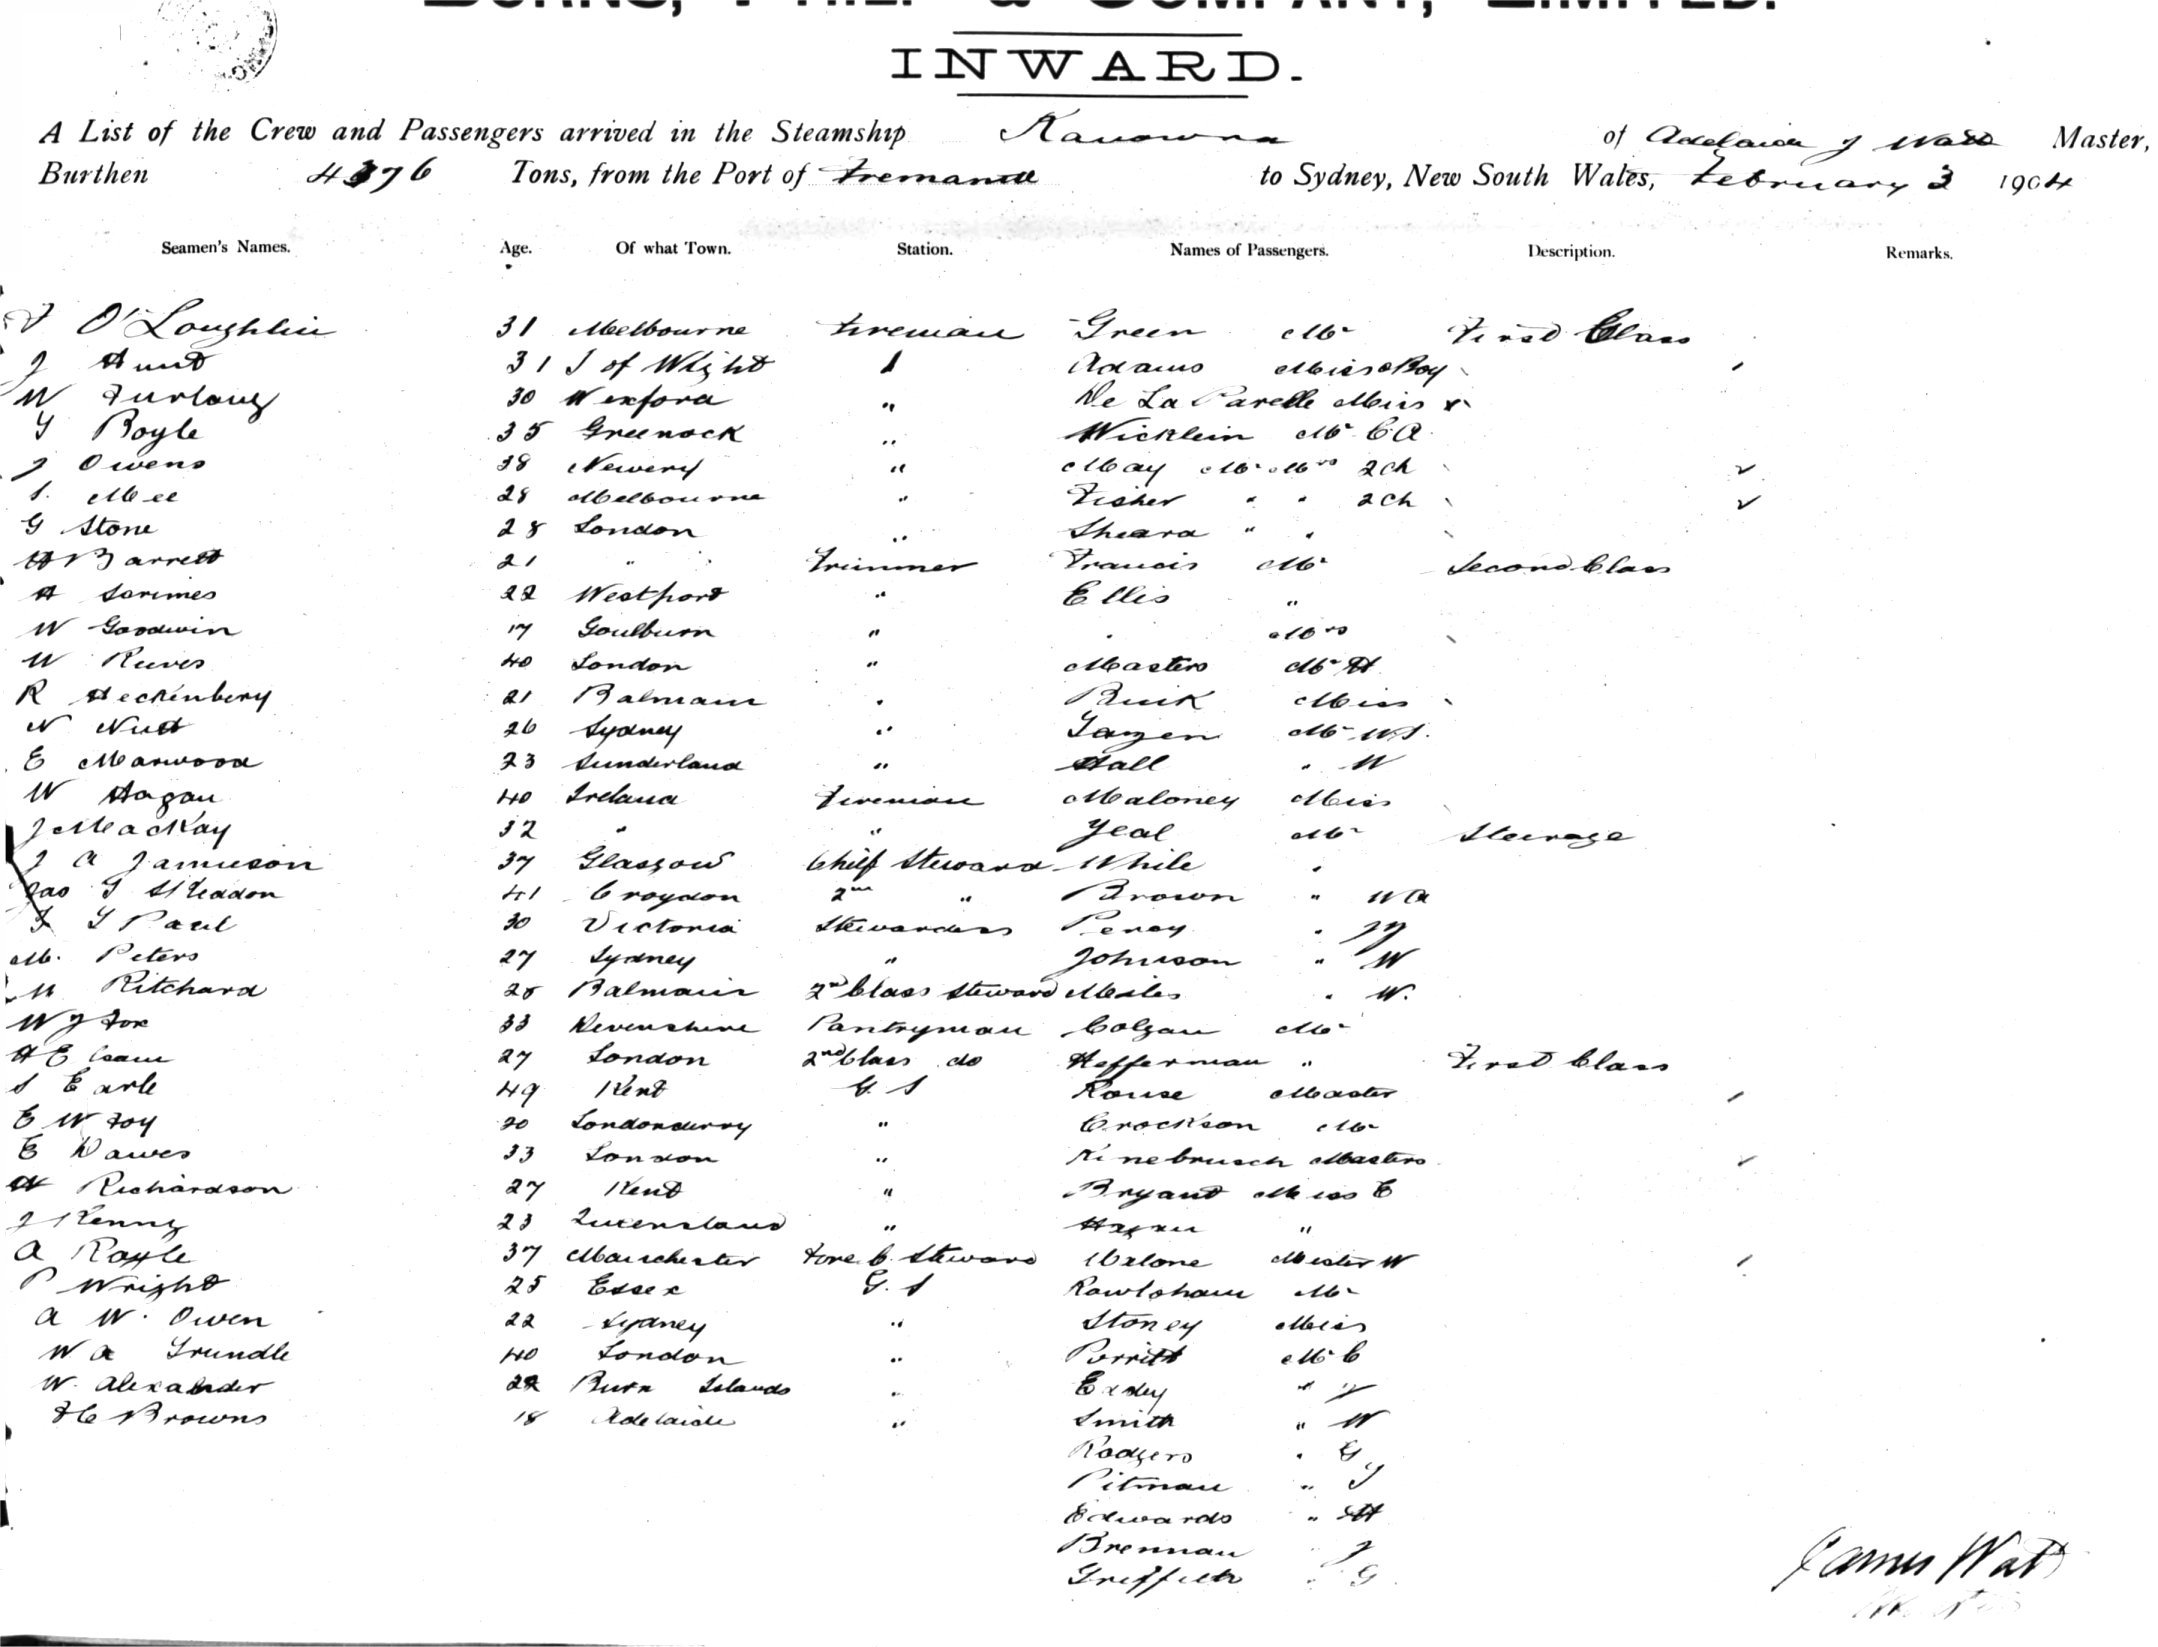 BURNS, PHILP & COMPANY, LIMITED.
INWARD.
A List of the Crew and Passengers arrived in the Steamship Kanowna of Adelaide J Watt Master,
Burthen 4376 Tons, from the Port of Fremantle to Sydney, New South Wales, February 3 1904
Seamen's Names. Age. Of what Town. Station. Names of Passengers. Description. Remarks.
O'Loughlin 31 Melbourne Fireman Green Mr First Class
J Hunt 31 I of Wight " Adams Miss & Boy
W Furlong 30 Wexford " De La Parelle Miss
Boyle 35 Greenock " Wicklein Mr C A
J Owens 38 Newery " May Mr Mrs 2 Ch
Mee 28 Melbourne " Fisher " " 2 Ch
G Stone 28 London " Sheard " "
H Barrett 21 " Trimmer Francis Mr Second Class
H Scrimes 22 Westport " Ellis "
W Goodwin 17 Goulburn " " Mrs
W Reeves 40 London " Masters Mr H
R Heckenbery 21 Balmain " Buik Miss
N Nutt 26 Sydney " Mr W.S.
E Marwood 23 Sunderland " Hall " W
W Hagan 40 Ireland Fireman Maloney Miss
J MacKay 32 " " Yeal Mr Steerage
J A Jamieson 37 Glasgow Chief Steward While "
Jas Skeddon 41 Croydon 2nd " Brown " W A
Paul 30 Victoria Stewardess Percy "
M. Peters 27 Sydney " Johnson " W
Ritchard 28 Balmain 2nd Class Steward Miles " W.
W J Fox 33 Devonshire Pantryman Colgan Mr
H E Cam 27 London 2nd Class do Hefferman " First Class
S Earle 49 Kent G. S Rouse Master
E W Foy 20 Londonderry " Crockson Mr
E Dawes 33 London " Kinebrusch Masters
H Richardson 27 Kent " Bryant Miss E
J Kenny 23 Queensland " Hagan "
A Royle 37 Manchester Fore C. Steward Malone Master W
P Wright 25 Essex G. S Rowlsham Mr
A W. Owen 22 Sydney " Stoney Miss
W A Trundle 40 London " Porritt Mr C
W. Alexander 22 Burn Islands " Exley " J
Browns 18 Adelaide " Smith " W
Rodgers " G
Pitman "
Edwards " H
Brennan " J
Griffith " G
James Watt